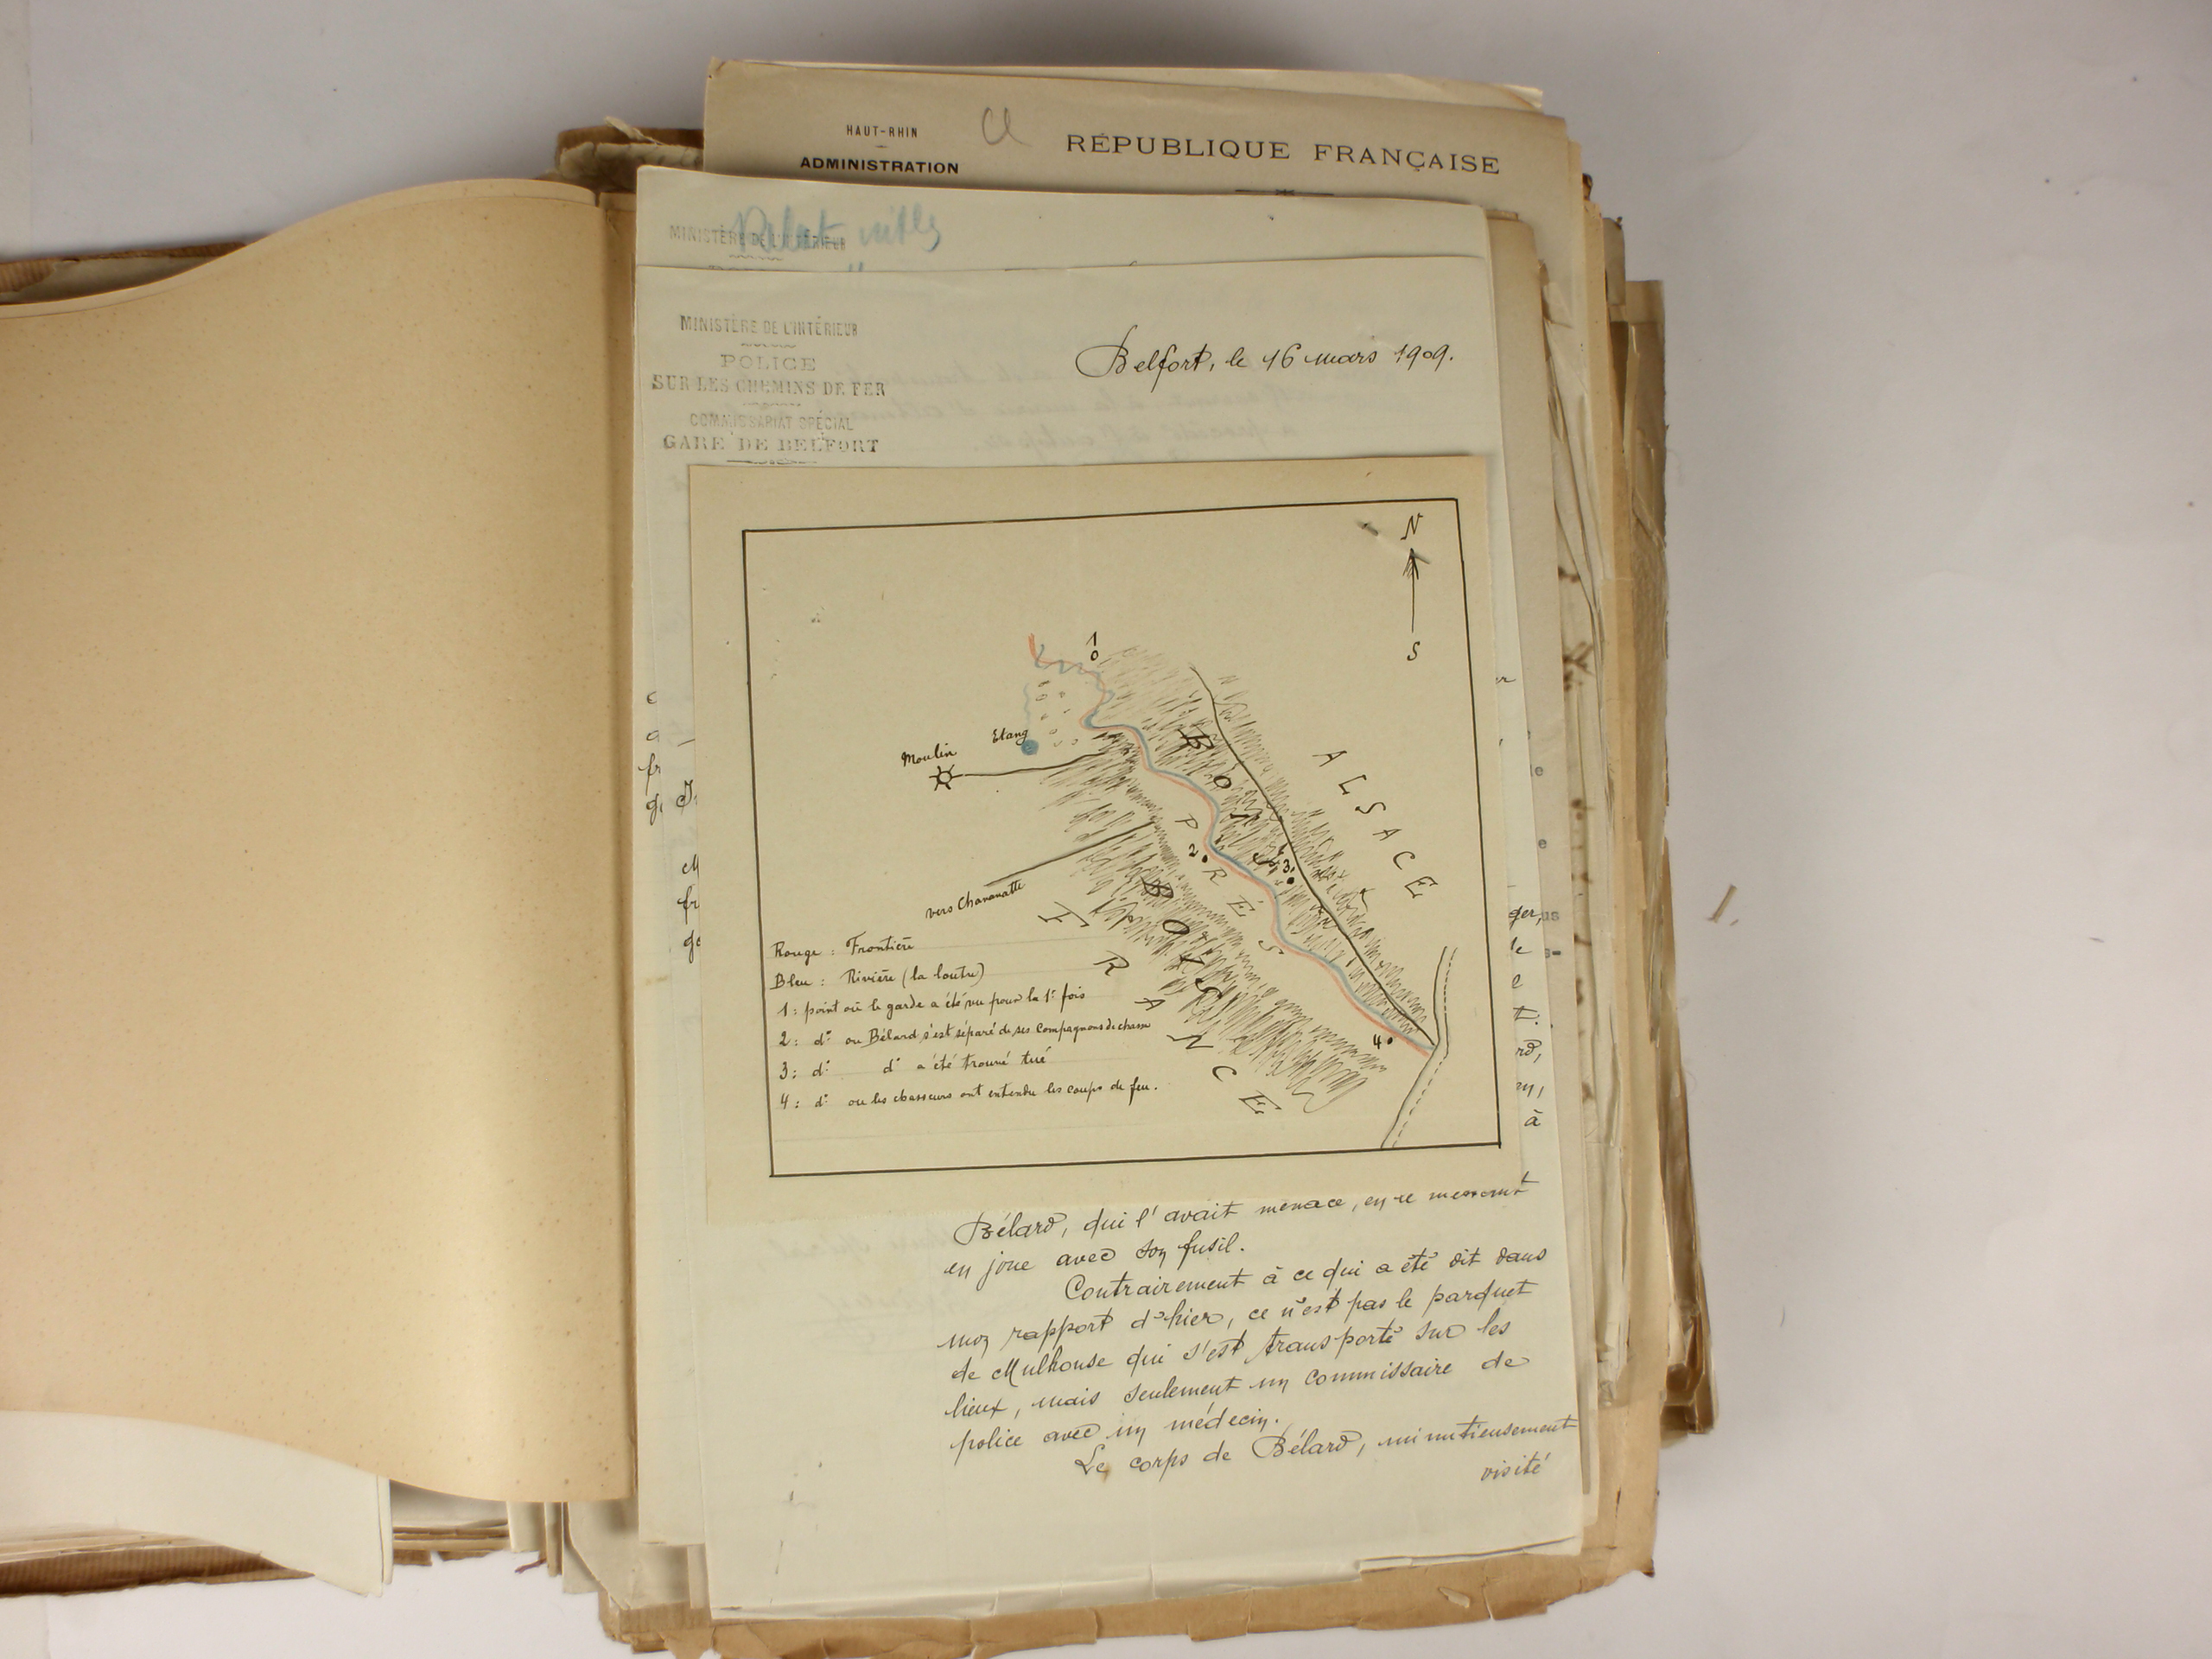 HAUT-RHIN
ADMINISTRATION
RÉPUBLIQUE FRANÇAISE
MINISTÈRE DE L'INTÉRIEUR
MINISTÈRE DE L'INTÉRIEUR
POLICE
SUR LES CHEMINS DE FER
COMMISSARIAT SPÉCIAL
GARE DE BELFORT
Belfort, le 16 mars 1909.
N
S
1
Etang
Moulin
ALSACE
BOIS
PRÉS
2
3
vers Chavanatte
BOIS
FRANCE
4
Rouge : Frontière
Bleu : Rivière (la loutre)
1 : point où le garde a été vu pour la 1e fois
2 : do ou Bélard s'est séparé de ses compagnons de chasse
3 : do do a été trouvé tué
4 : do ou les chasseurs ont entendu les coups de feu.
Bélard, qui l'avait menacé, en le mettant
en joue avec son fusil.
Contrairement à ce qui a été dit dans
mon rapport d'hier, ce n'est pas le parquet
de Mulhouse qui s'est transporté sur les
lieux, mais seulement un commissaire de
police avec un médecin.
Le corps de Bélard, minutieusement
visité